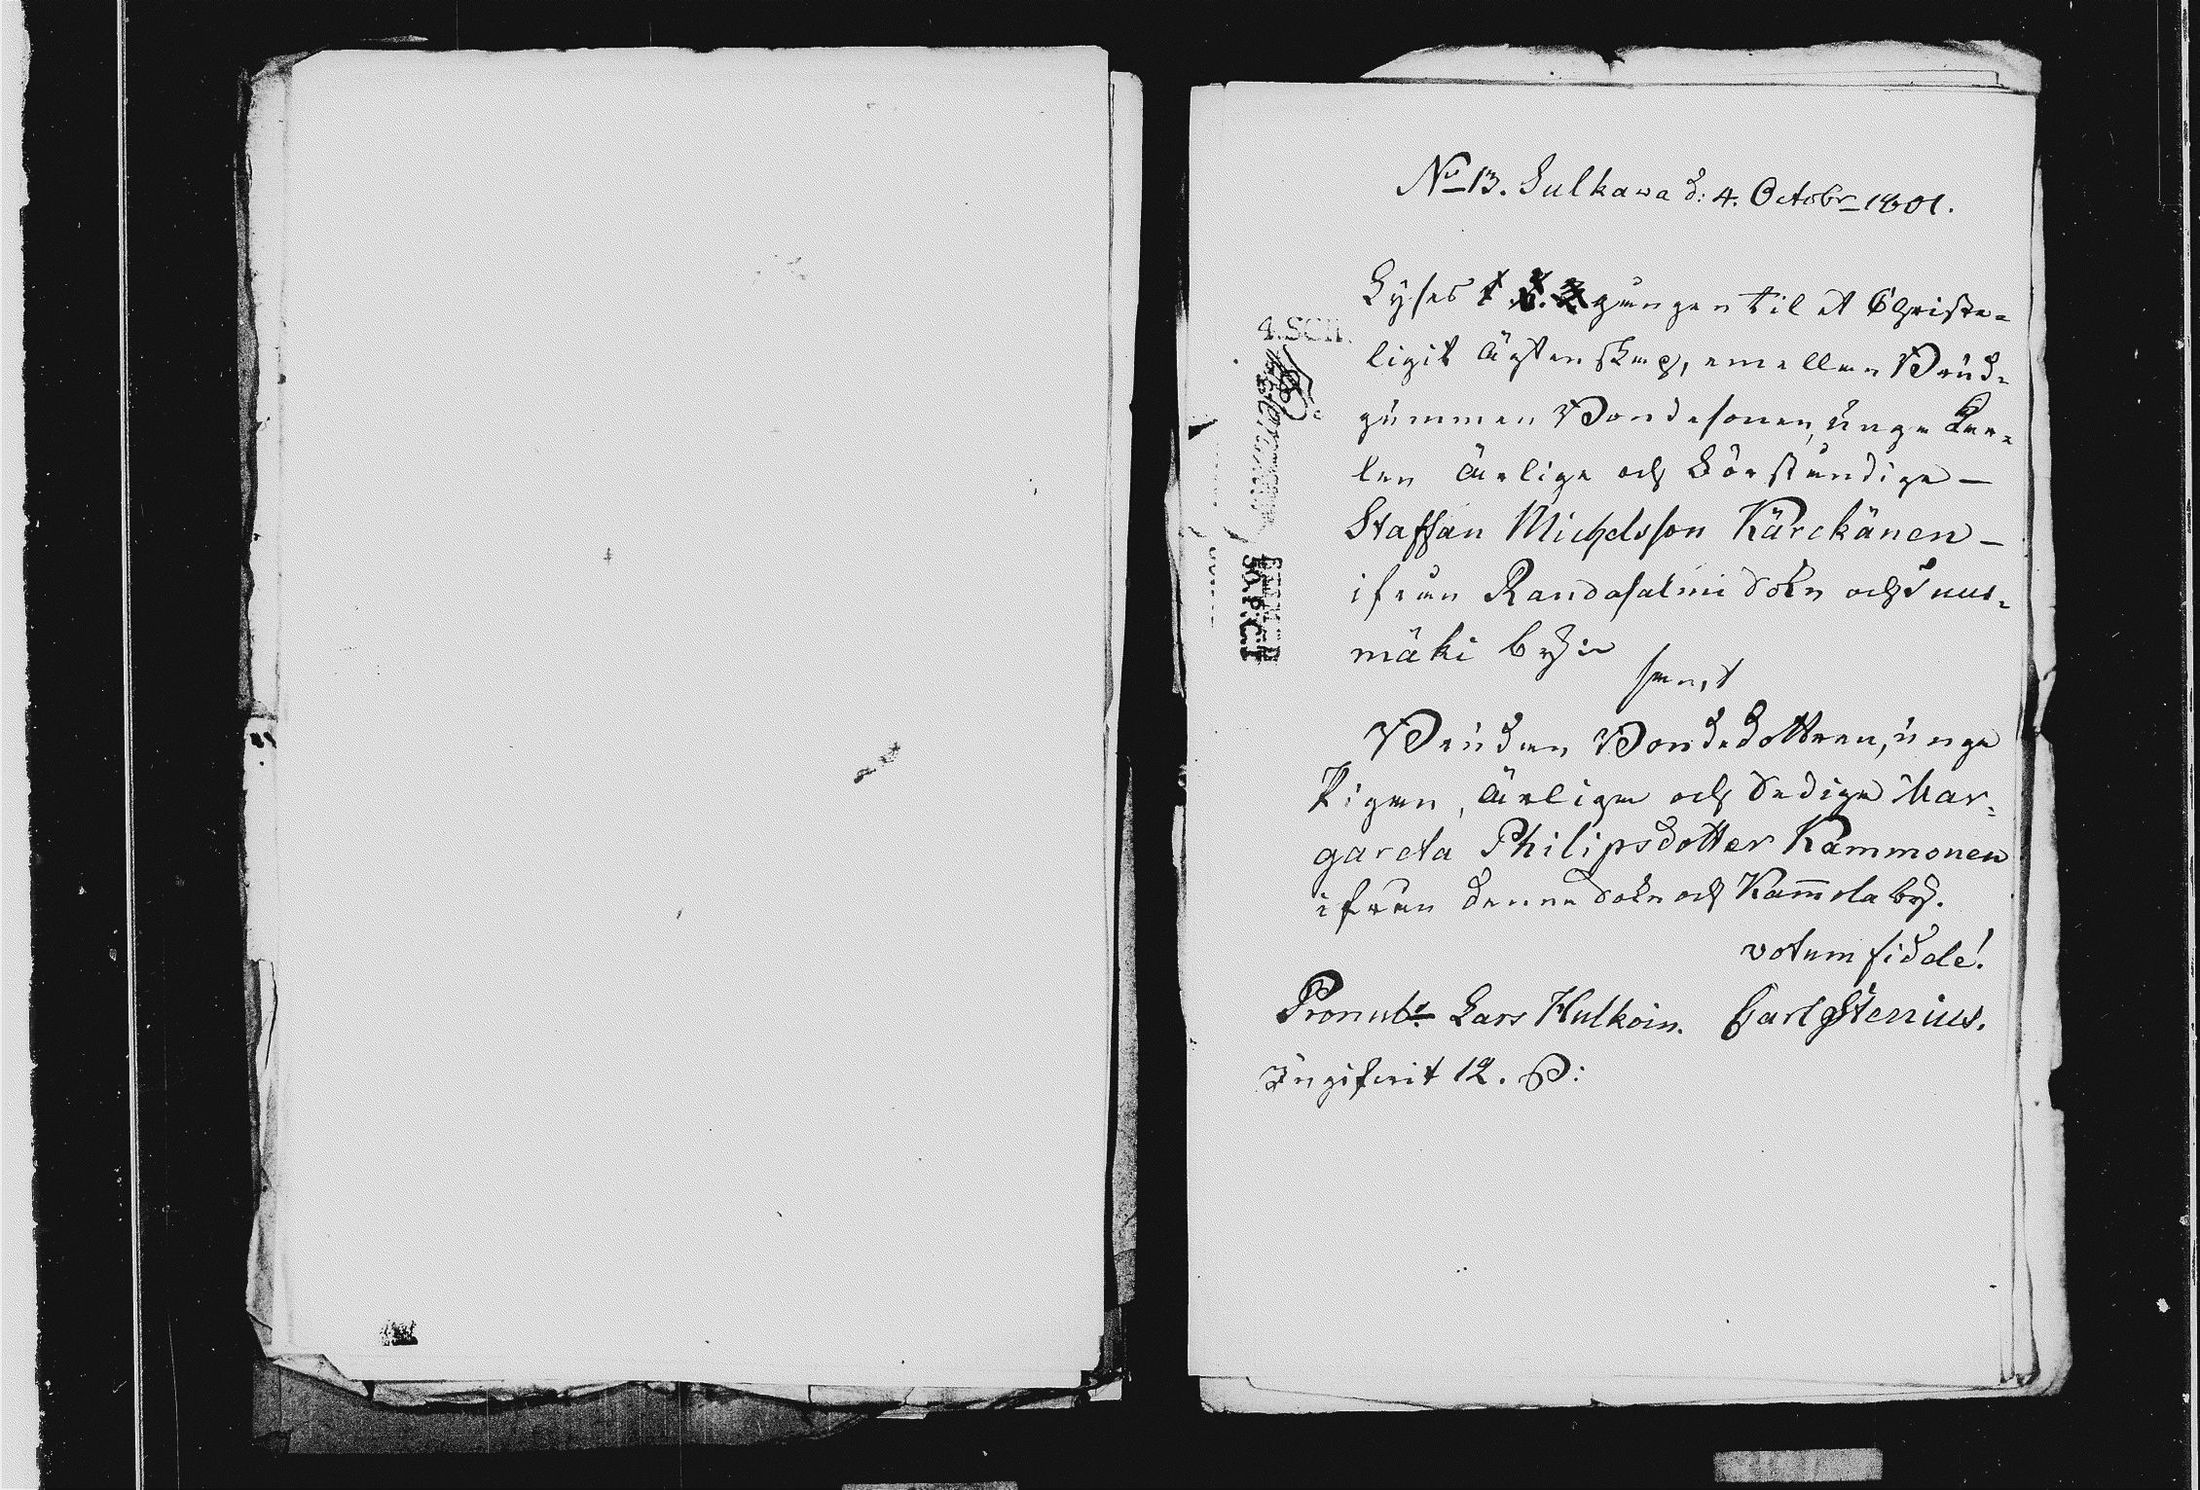 No 13. Sulkawa d: 4. Octobr 1801.
Lyses gången til et Christe=
ligit ägtenskap, emellan Brud=
gummen Bondesonen, unga Kar=
len ärlige och Börständige —
Staffan Michelsson Kärckänen —
ifrån Randasalmi Sokn och Juus=
mäki by:
samt
Bruden Bondedottren, unga
Pigan, ärliga och Sediga Mar=
gareta Philipsdotter Kammonen
ifrån denna Sokn och Kam̅ola by.
votum fidele!
Pronubs Lars Hulkoin. Carl G Stenius.
Ingifwit 12. P:
4.SCH.